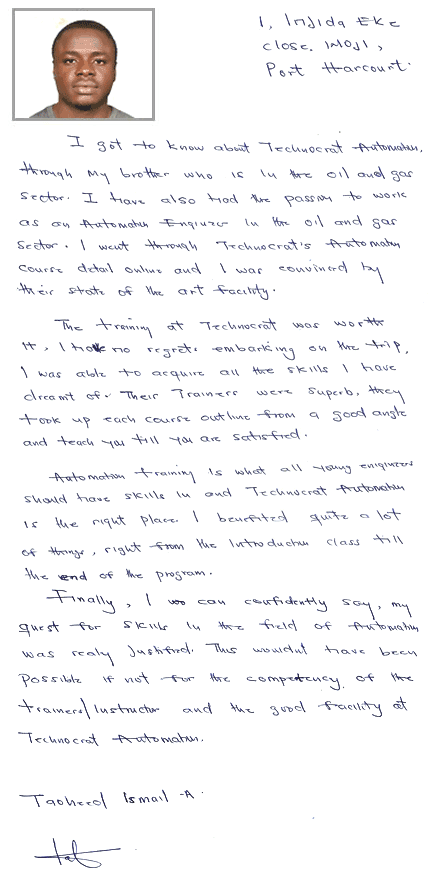 1, Injida Eke
close. Woji,
Port Harcourt.
I got to know about Technocrat Automation
through my brother who is in the oil and gas
sector. I have also had the passion to work
as an Automation Engineer in the oil and gas
sector. I went through Technocrat's Automation
course detail online and I was convinced by
their state of the art facility.
The training at Technocrat was worth
it, I have no regrets embarking on the trip,
I was able to acquire all the skills I have
dreamt of. Their Trainers were superb, they
took up each course outline from a good angle
and teach you till you are satisfied.
Automation training is what all young engineers
should have skills in and Technocrat Automation
is the right place. I benefited quite a lot
of things, right from the introduction class till
the end of the program.
Finally, I can confidently say, my
quest for skills in the field of Automation
was realy Justified. This wouldnt have been
possible if not for the competency of the
trainers/Instructor and the good facility at
Technocrat Automation.
Taoheed Ismail -A.